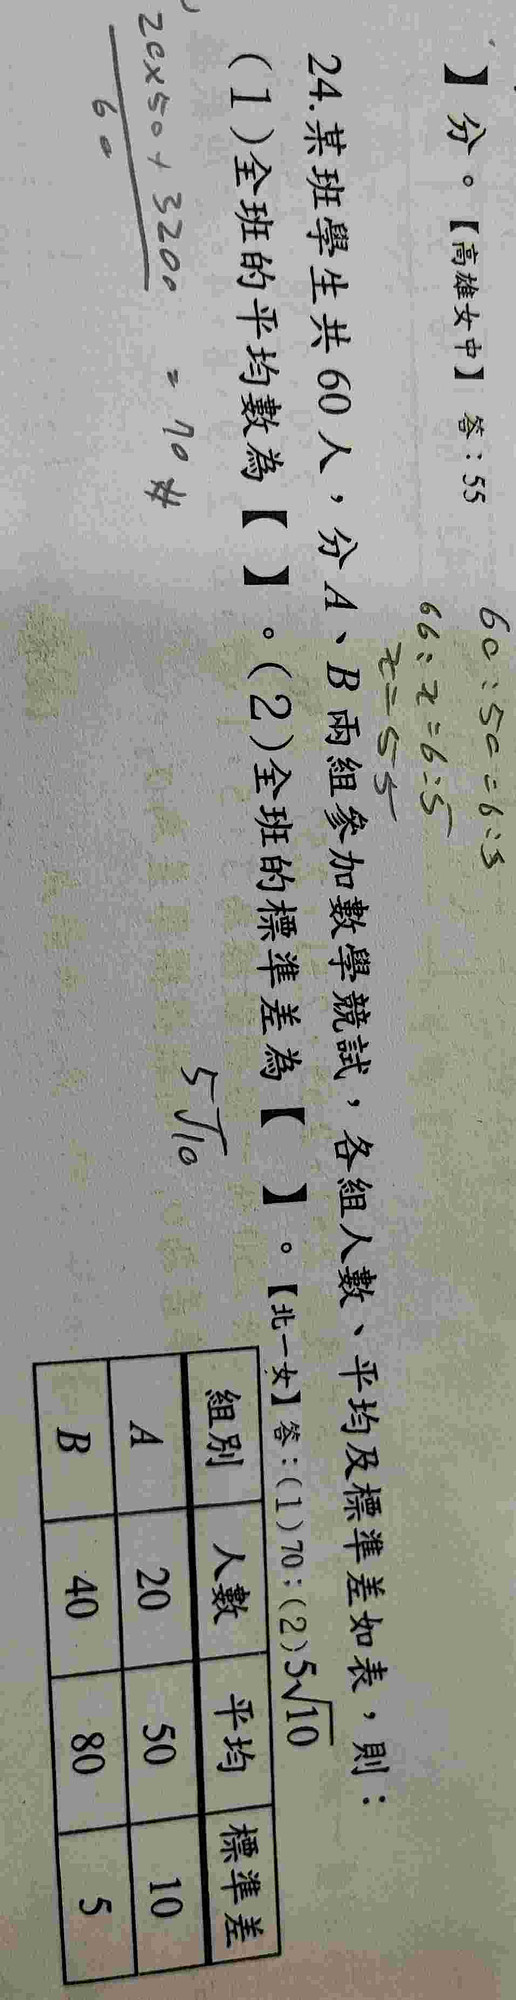 】分。【高雄女中】 答：55
60:50=6:5
66:x=6:5
x=55
24.某班學生共60人，分A、B兩組參加數學競試，各組人數、平均及標準差如表，則：
(1)全班的平均數為【 】。(2)全班的標準差為【 】。【北一女】答：(1)70；(2)5√10
20×50+3200
60
=70 #
5√10
組別 人數 平均 標準差
A 20 50 10
B 40 80 5